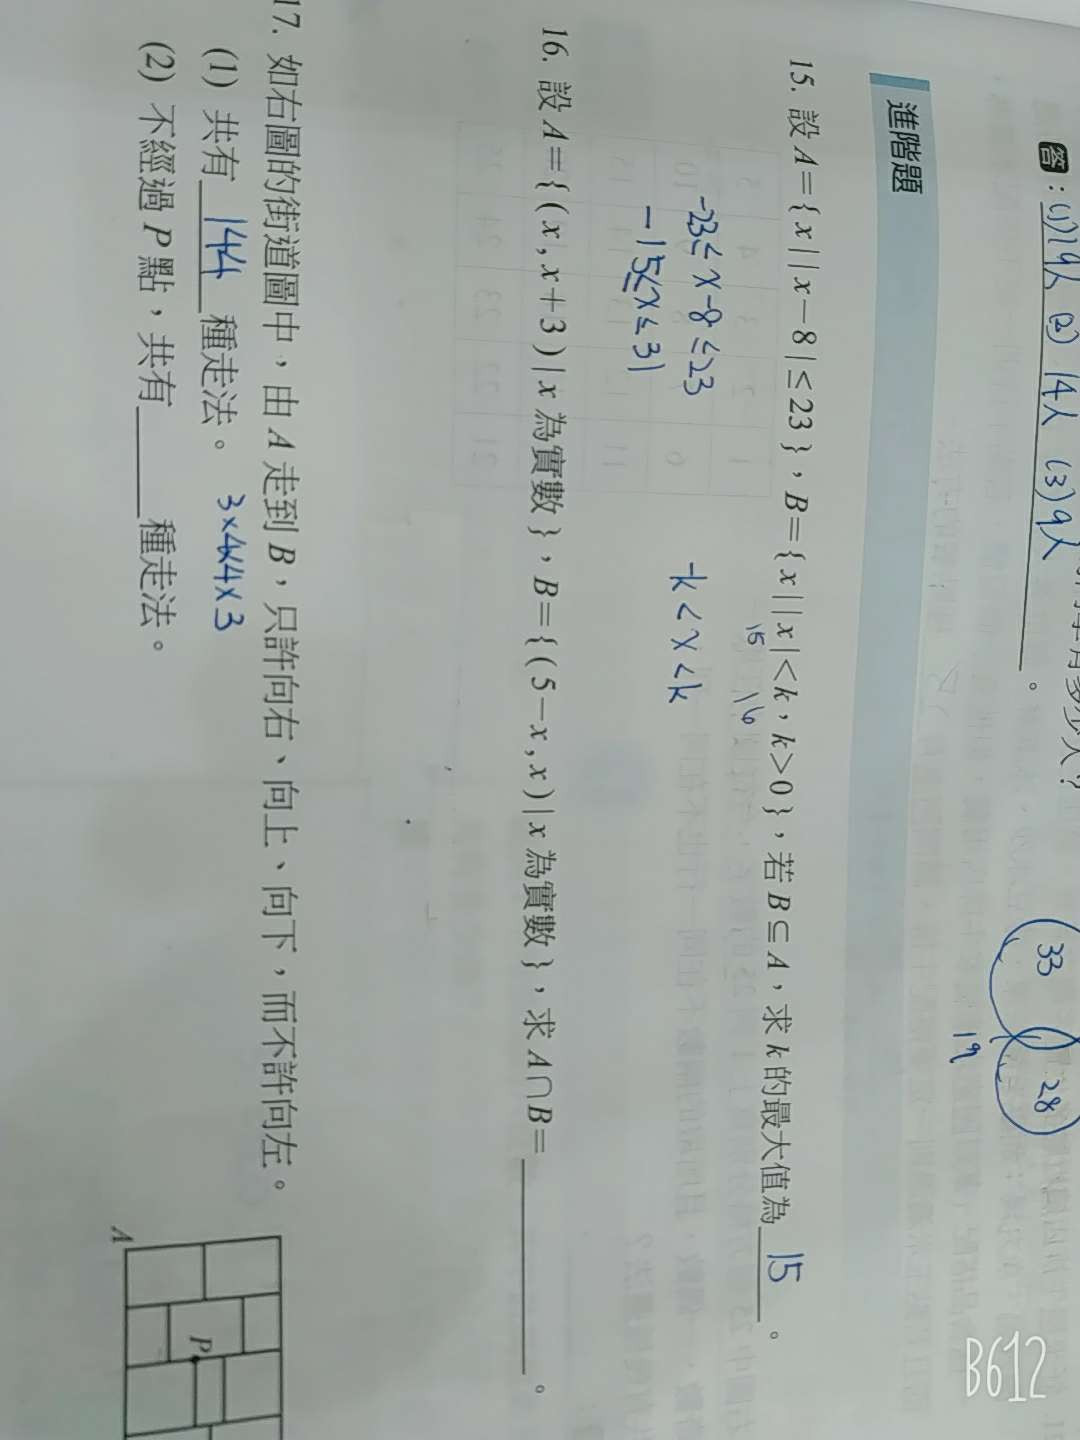 答：(1)19人 (2) 14人 (3)9人。
33 28
19
進階題
15. 設 A={x||x－8|≤23}，B={x||x|<k，k>0}，若 B⊆A，求 k 的最大值為 15 。
15 16
-23≤x-8≤23
-15≤x≤31
-k<x<k
16. 設 A={(x,x＋3)|x 為實數}，B={(5－x,x)|x 為實數}，求 A∩B=＿＿＿。
17. 如右圖的街道圖中，由 A 走到 B，只許向右、向上、向下，而不許向左。
(1) 共有 144 種走法。 3×4×4×3
(2) 不經過 P 點，共有＿＿＿種走法。
P
A
B612